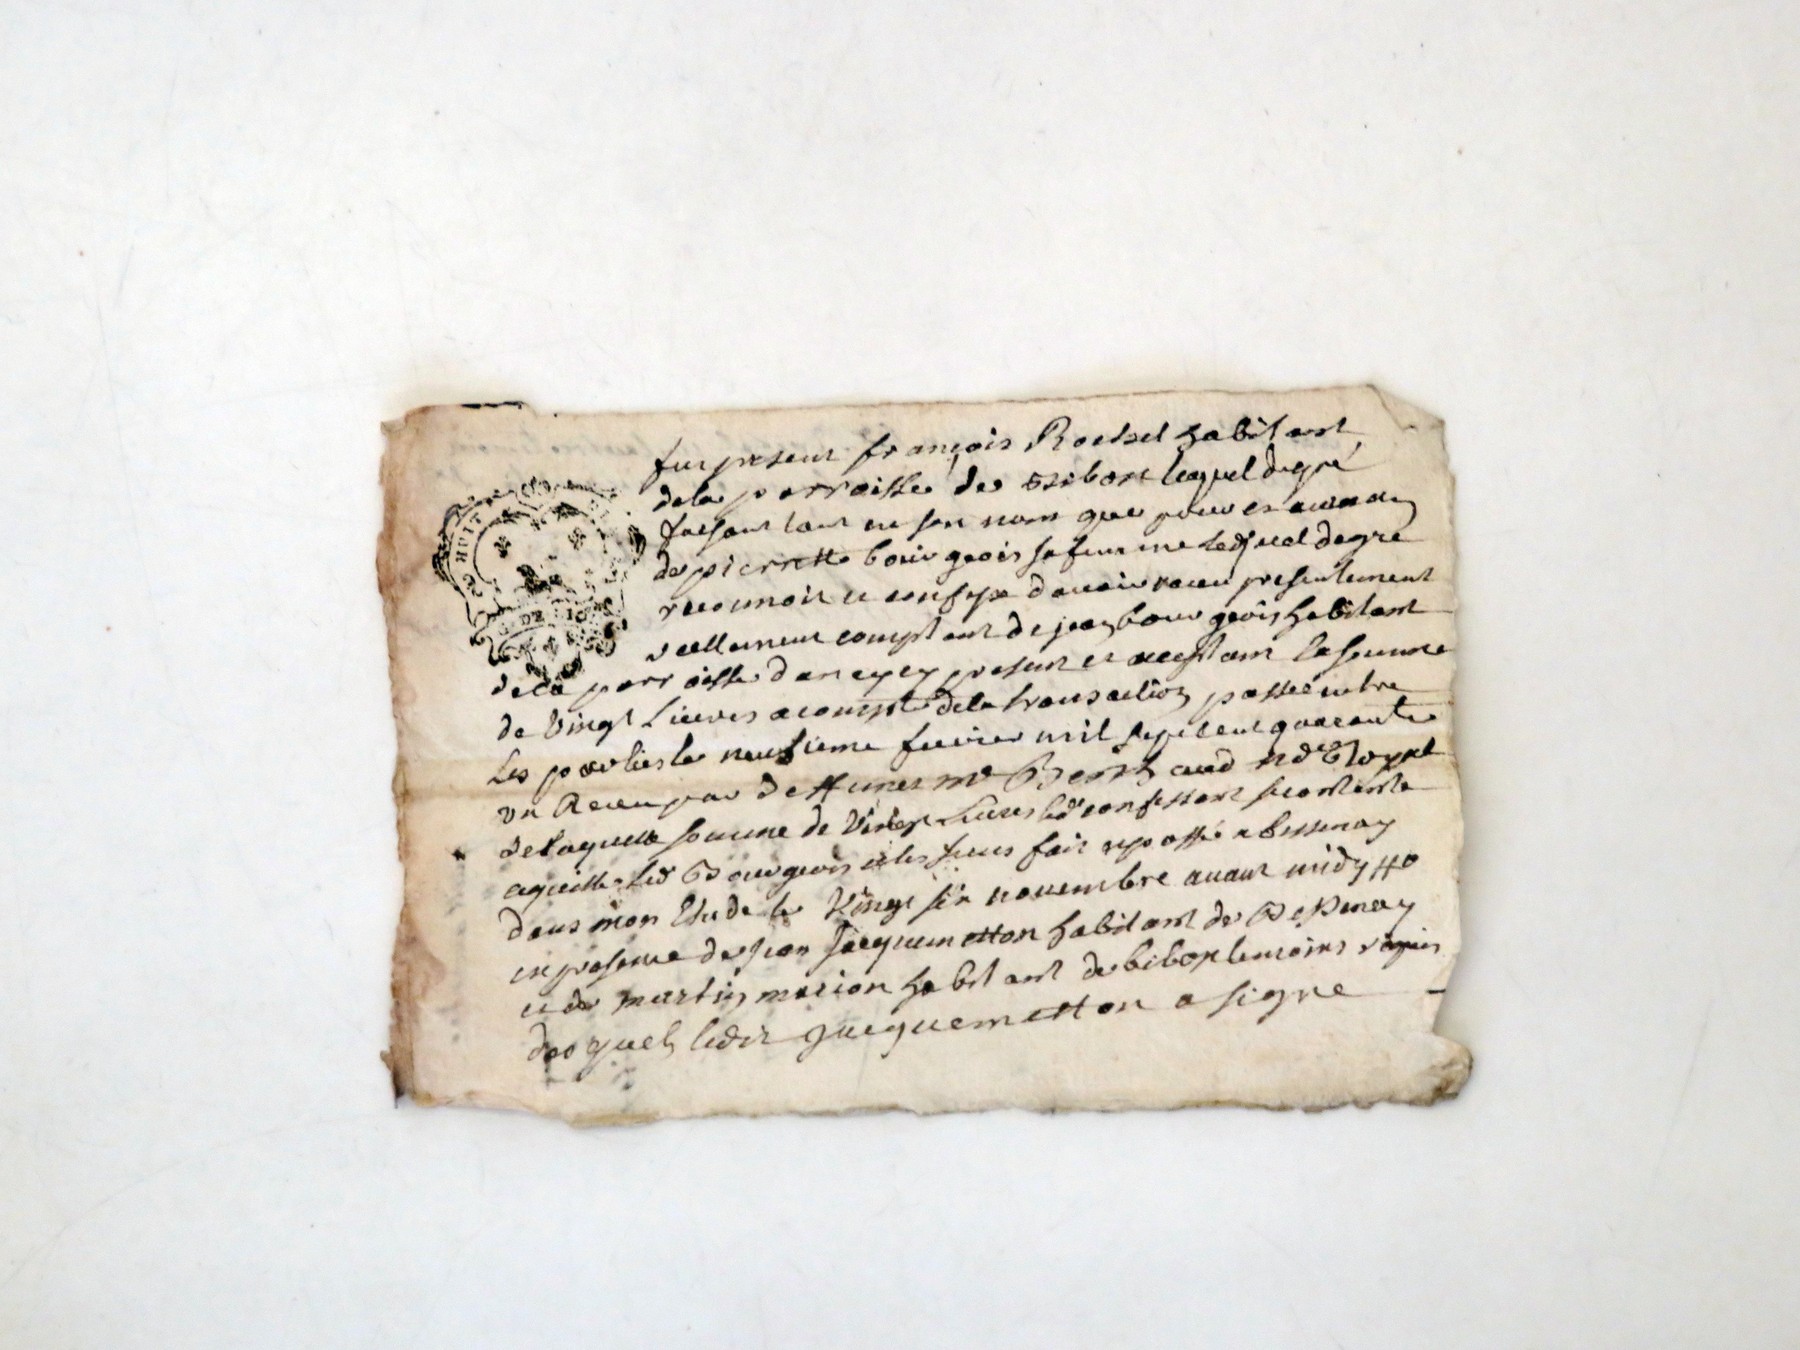 HUIT
DE LION
fut present françois Rochel habitant
de la parroisse de bibost lequel degré
faisant tant en son nom que pour et au nom
de pierrette bourgeois sa femme ledquel degré
reconnoit et confesse d'avoir receu presentement
reellement comptant de jean bourgeois habitant
de la parroisse d'ancy present et acceptant la somme
de Vingt Livres acompte de la transaction passée entre
Les parties le neufieme fevrier mil sept cent quarante
un Receu par de me
de laquelle somme de Vingt Livres led confessant se contente
aquitte led Bourgeois et les siens fait et passé a bessenay
dans mon Etude le Vingt six novembre avant midy
en presence de jean jacquemetton habitant de Bessenay
et de martin marion habitant de bibost temoins requis
desquels ledit jacquemetton a signe